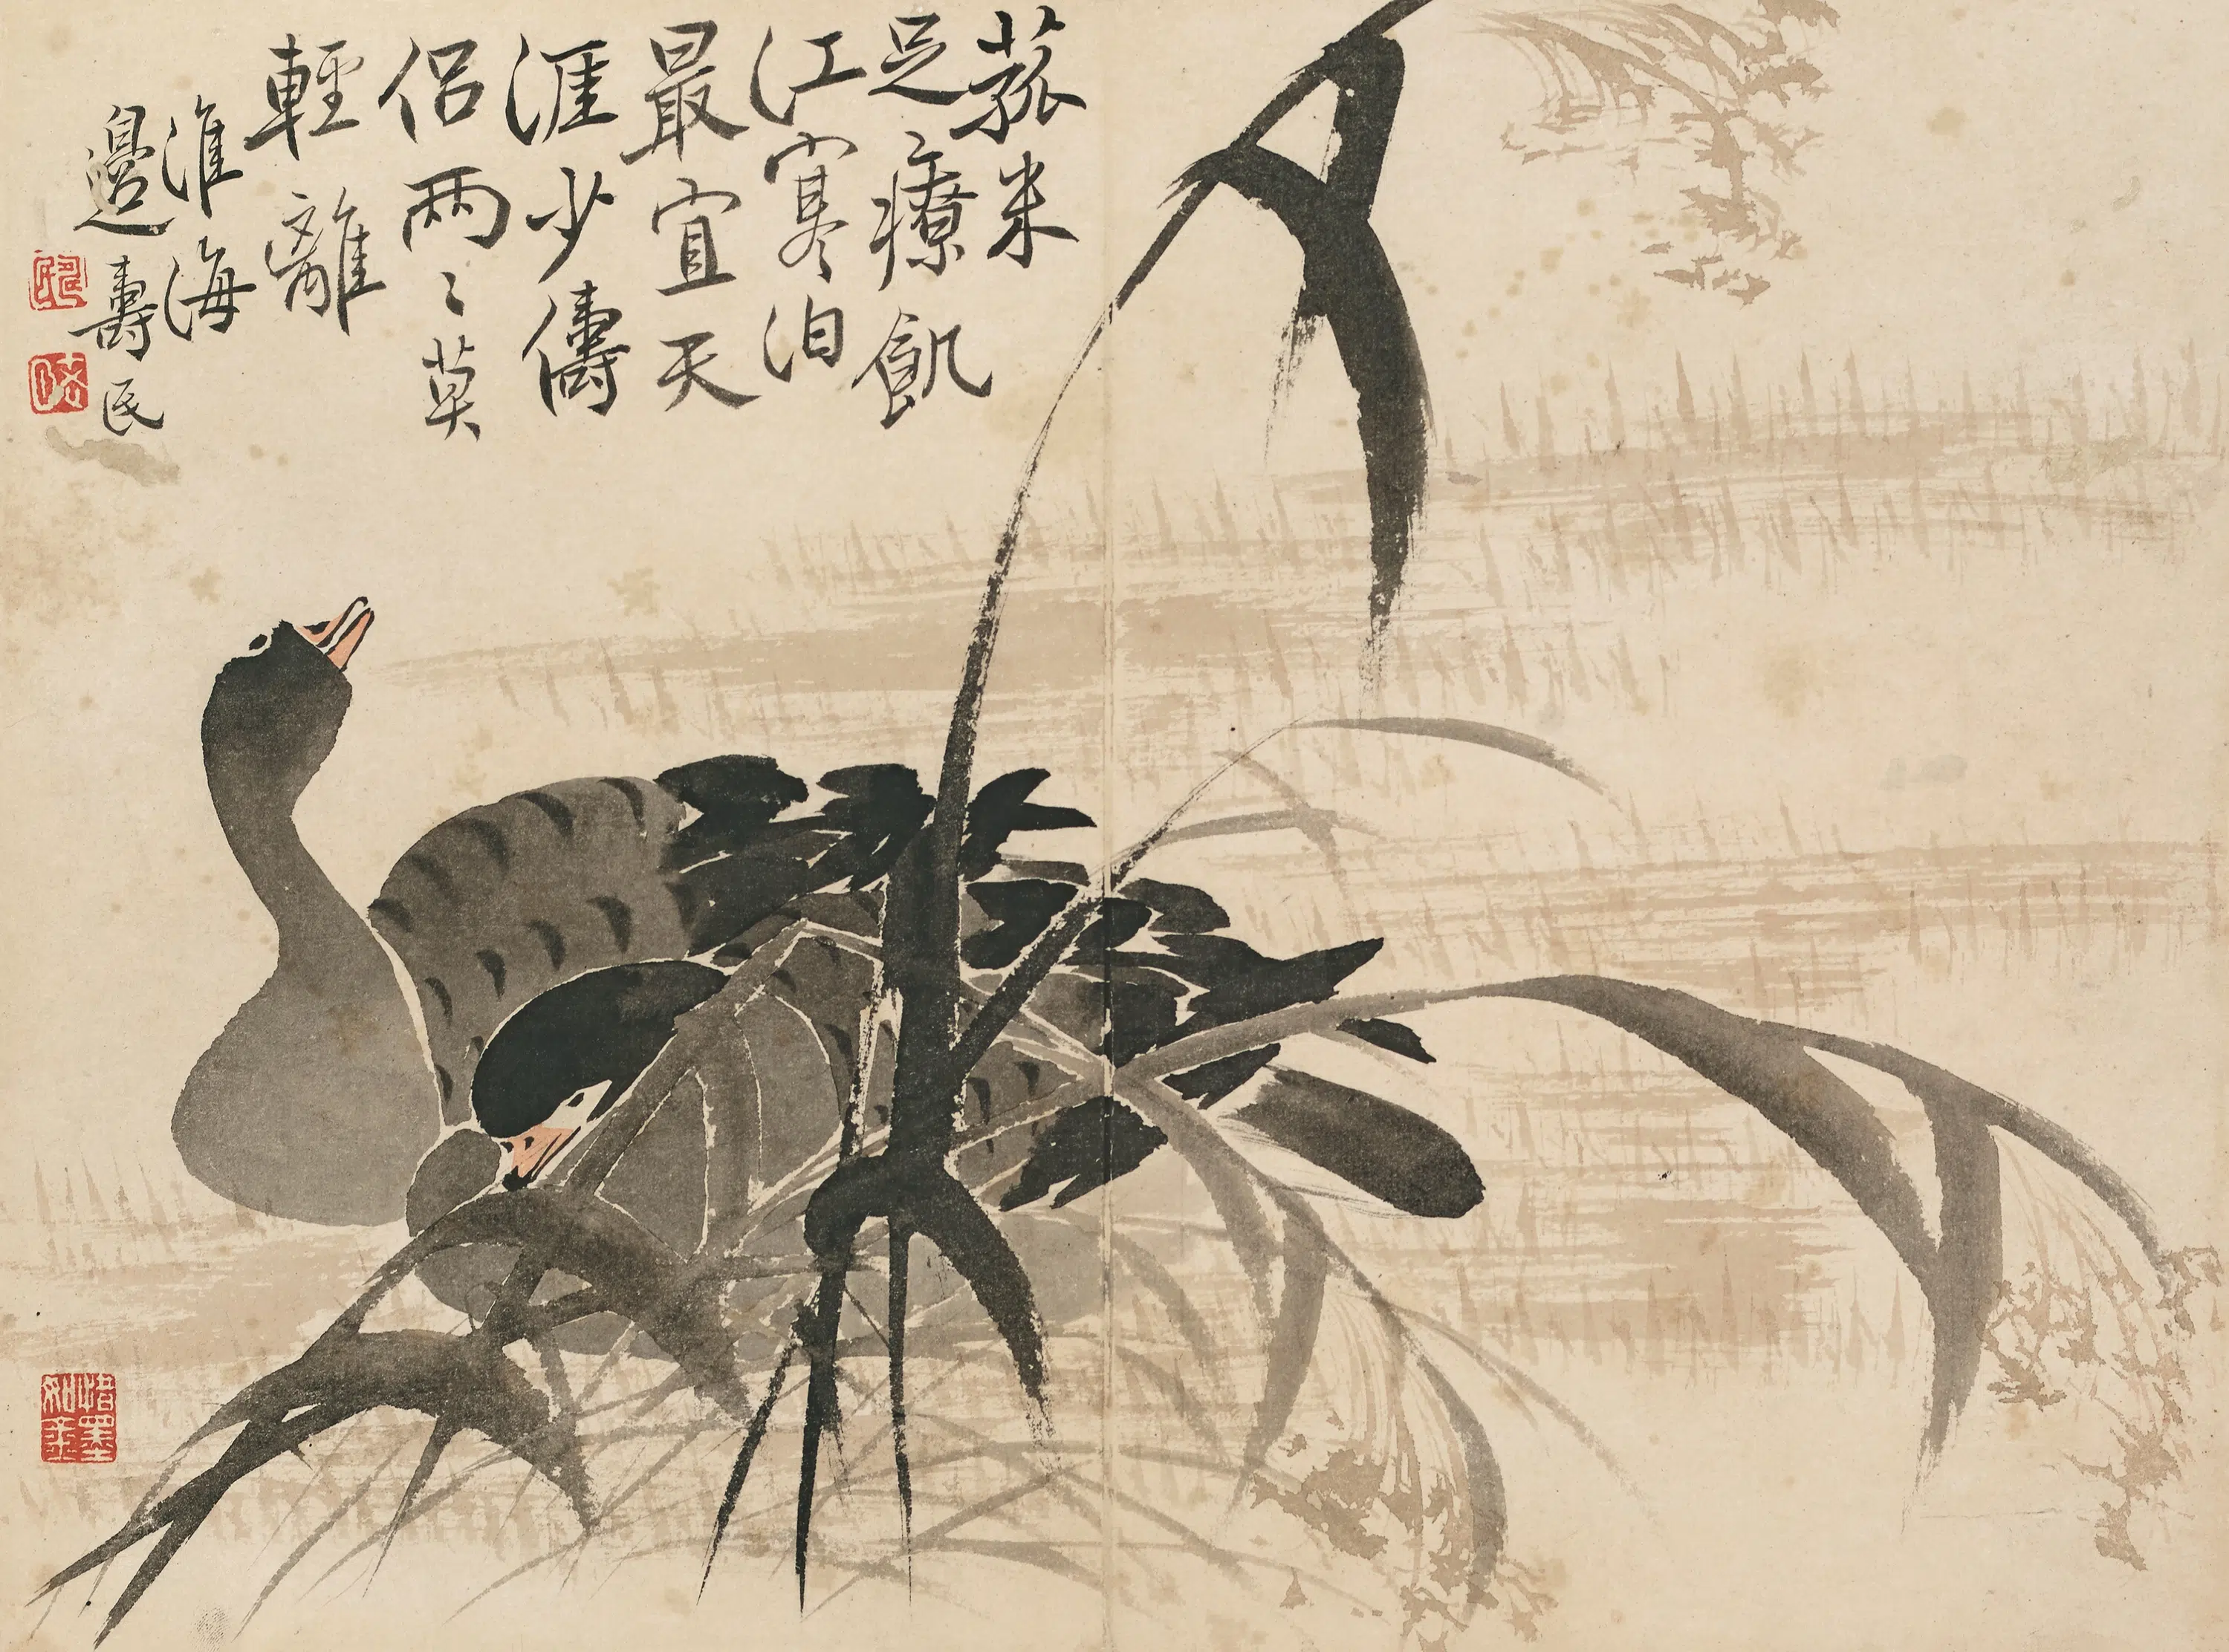 菰米
足療飢
江寒泊
最宜天
涯少儔
侶兩〻莫
輕離
淮海
邊壽民